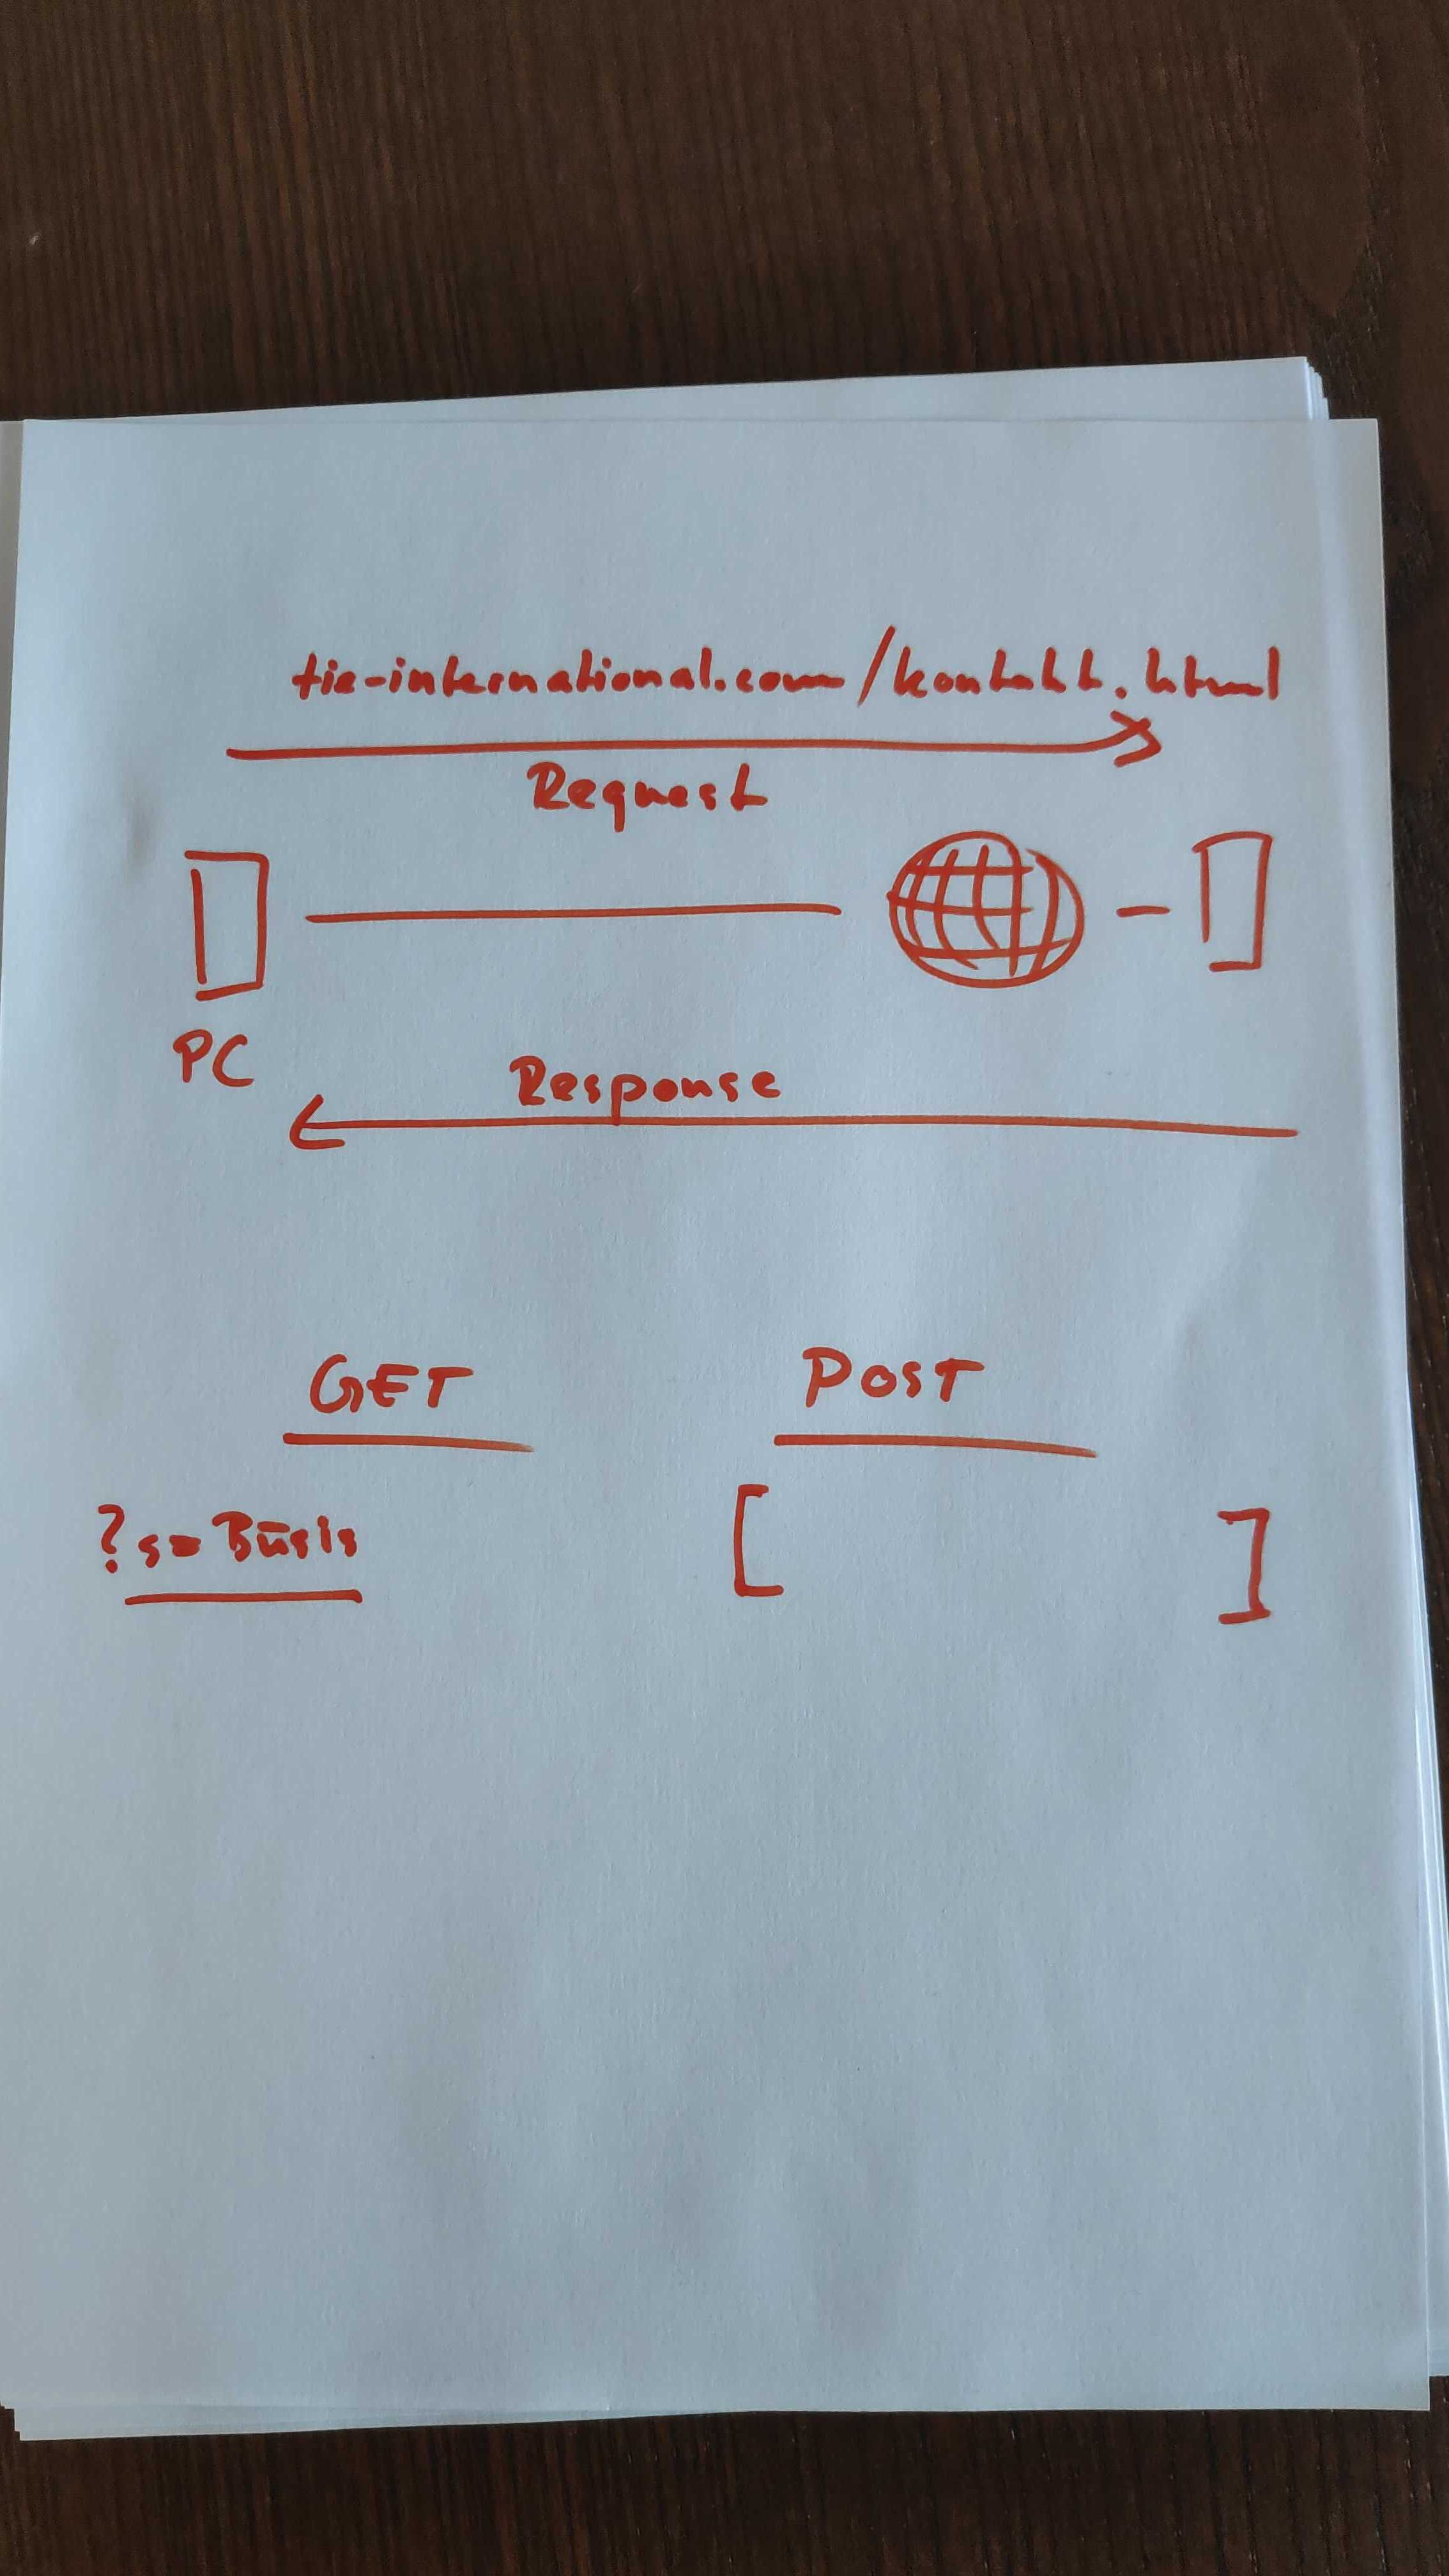 tie-international.com/kontakt.html
Request
PC
Response
GET POST
?s=Büsis
[ ]